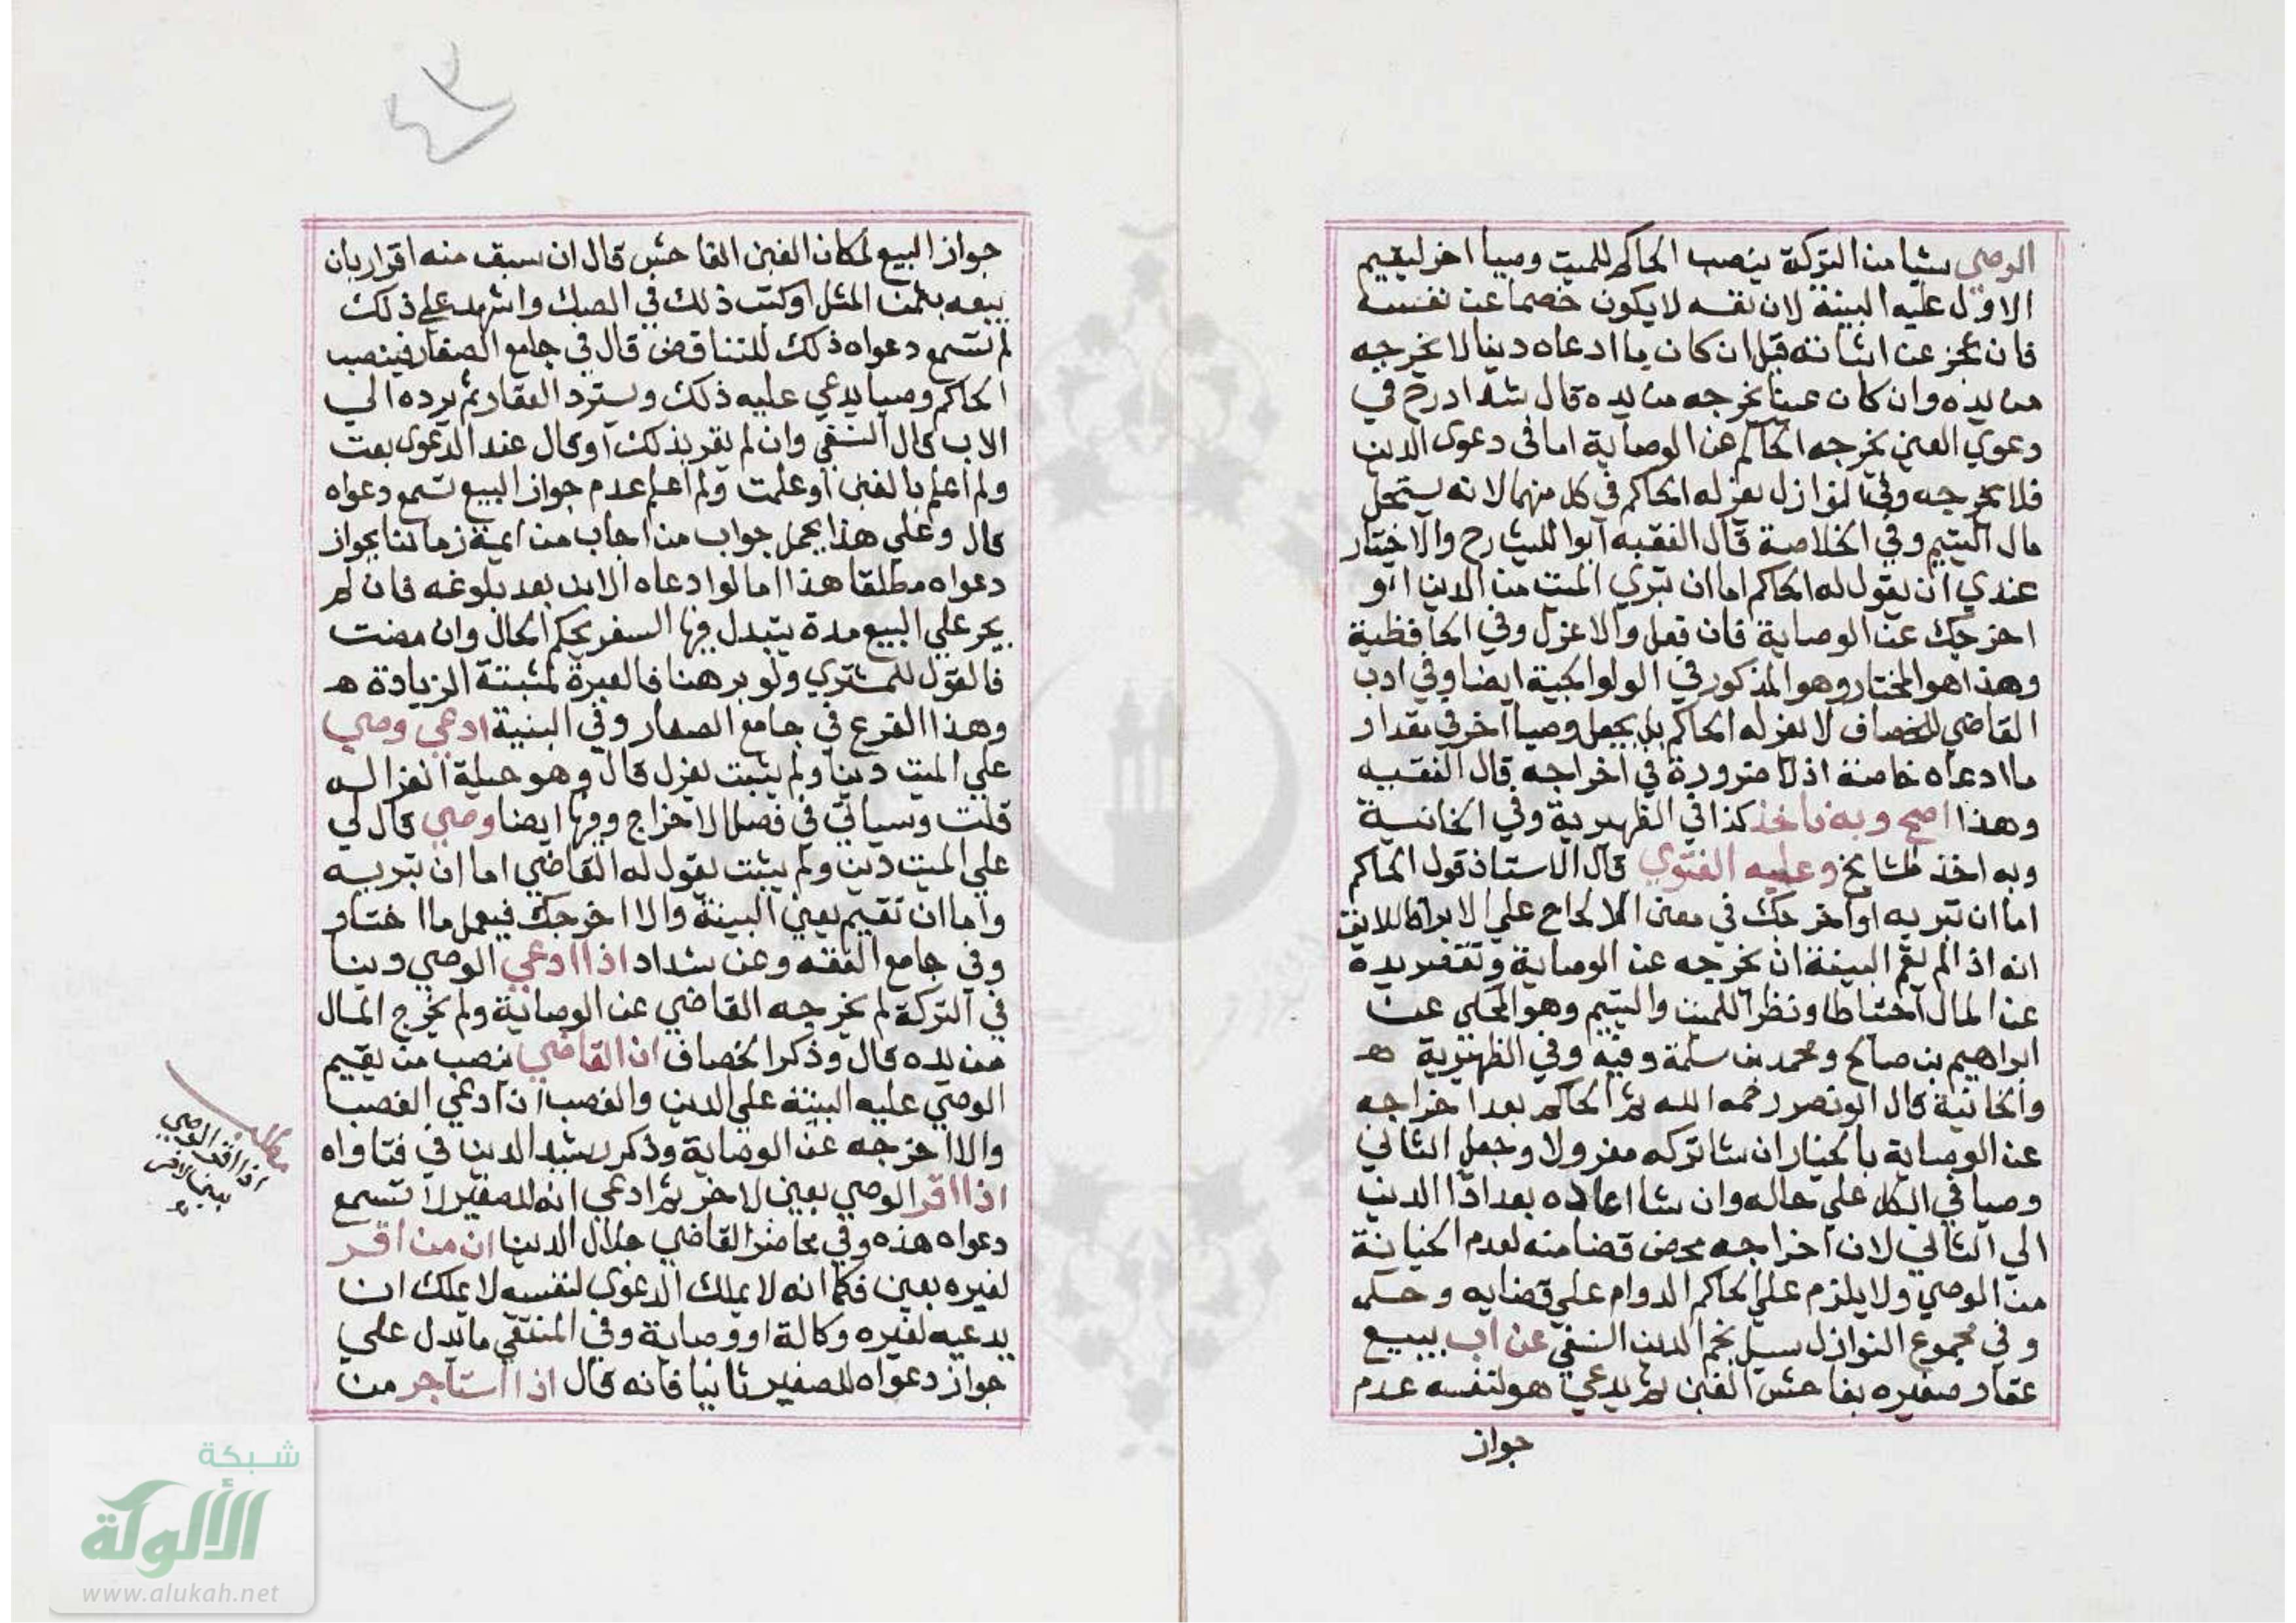 الوصي شيا من التركة ينصب الحاكم للميت وصيا اخر ليقيم
الاول عليه البينة لان نفسه لا يكون خصما عن نفسه
فان عجز عن اثباته قيل ان كان ما ادعاه دينا لا يخرجه
من يده وان كان عينا يخرجه من يده قال شداد رح في
دعوي العين يخرجه الحاكم عن الوصاية اما في دعوى الدين
فلا يخرجه وفي النوازل يعزله الحاكم في كل منهما لانه يستحل
مال اليتيم وفي الخلاصة قال الفقيه ابوا لليث رح والاختيار
عندي ان يقول له الحاكم اما ان تبري الميت من الدين او
اخرجك عن الوصاية فان فعل والا عزل وفي الحافظية
وهذا هو المختار وهو المذكور في الولوالجية ايضا وفي ادب
القاضي للخصاف لا يعزله الحاكم بل يجعل وصيا اخر في مقدار
ما ادعاه خاصة اذ لا ضرورة في اخراجه قال الفقيه
وهذا اصح وبه ناخذ كذا في الظهيرية وفي الخانية
وبه اخذ المشايخ وعليه الفتوي قال الاستاذ قول الحاكم
اما ان تبريه او اخرجك في معنى الالحاح علي الابرا
انه اذا لم يقم البينة ان يخرجه عن الوصاية وتقصر يده
عن المال احتياطا ونظرا للميت واليتيم وهو المحكي عن
ابراهيم بن صالح ومحمد بن سلمة وفيه وفي الظهيرية ه
والخانية قال ابو نصر رحمه الله ثم الحاكم بعد اخراجه
عن الوصاية بالخيار ان شا تركه معزولا وجعل الثاني
وصيا في الكل علي حاله وان شا اعاده بعد ادا الدين
الي الثاني لان اخراجه محض قضا منه لعدم الخيانة
من الوصي ولا يلزم علي الحاكم الدوام علي قضايه وحكمه
وفي مجموع النوازل سيل نجم الدين النسفي عن اب يبيع
عقار صغيره بفاحش الغبن ثم يدعي هو لنفسه عدم
جواز
جواز البيع لمكان الغبن الفاحش قال ان سبق منه اقرار بان
بيعه بثمن المثل او كتب ذلك في الصك واشهد علي ذلك
لم تسمع دعواه ذلك للتناقض قال في جامع الصغار فينصب
الحاكم وصيا يدعي عليه ذلك ويسترد العقار ثم يرده الي
الاب قال النسفي وان لم يقر بذلك او قال عند الدعوى بعت
ولم اعلم بالغبن او علمت ولم اعلم عدم جواز البيع تسمع دعواه
قال وعلي هذا يحمل جواب من اجاب من ايمة زماننا بجواز
دعواه مطلقا هذا اما لو ادعاه الابن بعد بلوغه فان لم
يجر علي البيع مدة يتبدل فيها السعر يحكم الحال وان مضت
فالقول للمشتري ولو برهنا فالعبرة لمثبتة الزيادة ه
وهذا الفرع في جامع الصغار وفي البنية ادعي وصي
علي الميت دينا ولم يثبت يعزل قال وهو حيلة انعزاله
قلت وسياتي في فصل الاخراج وفيها ايضا وصي قال لي
علي الميت دين ولم يثبت يقول له القاضي اما ان تبريه
واما ان تقيم يعني البينة والا اخرجك فيعمل ما اختار
وفي جامع الفقه وعن شداد اذا ادعي الوصي دينا
في التركة لم يخرجه القاضي عن الوصاية ولم يخرج المال
من يده قال وذكر الخصاف ان القاضي ينصب من يقيم
الوصي عليه البينة علي الدين والغصب ان ادعي الغصب
والا اخرجه عن الوصاية وذكر رشيد الدين في فتاواه
اذا اقر الوصي بعين لاخر ثم ادعي انه للصغير لا تسمع
دعواه هذه وفي محاضر القاضي جلال الدين ان من اقر
لغيره بعين فكما انه لا يملك الدعوي لنفسه لا يملك ان
يدعيه لغيره وكالة او وصاية وفي المنتقي ما يدل علي
جواز دعواه للصغير ثانيا فانه قال اذا استاجر من
مطلب
اذا اقر الوصي
بعين لاخر
شبكة
الألوكة
www.alukah.net